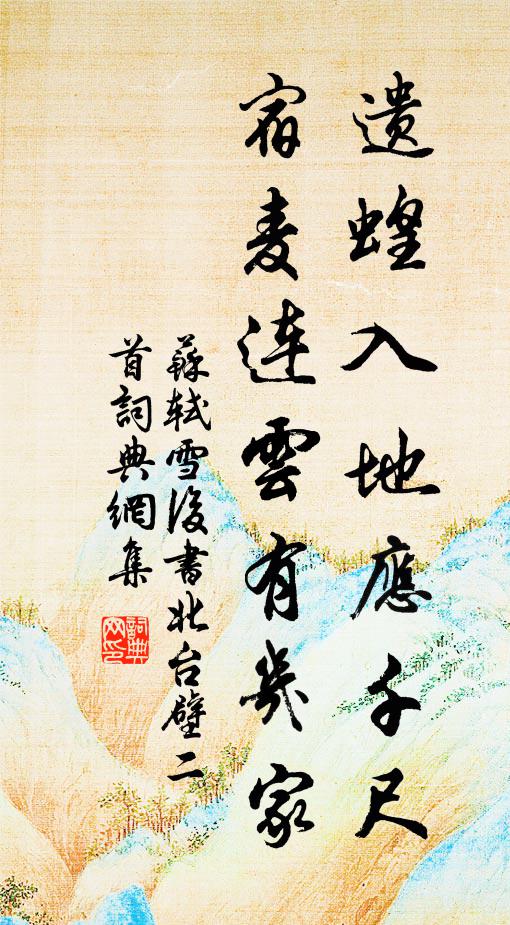 遺蝗入地應千尺
宿麦連雲有幾家
蘇軾雪後書北台壁二
首詞典網集
詞典
网印